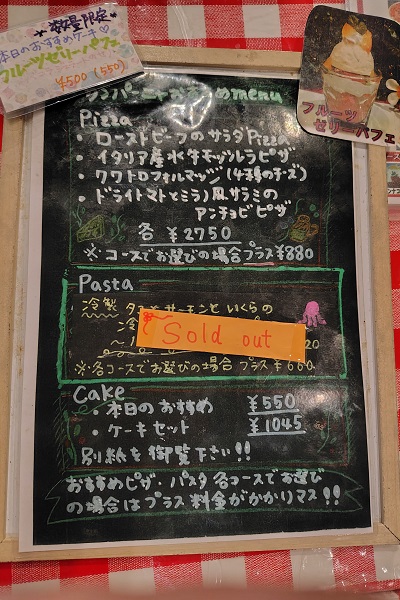 ★数量限定★
本日のおすすめケーキ
フルーツゼリーパフェ
¥500 (550)
フルーツ
ゼリーパフェ
おすすめmenu
Pizza
・ローストビーフのサラダPizza
・イタリア産水牛モッツァレラピザ
・クワトロフォルマッジ(4種のチーズ)
・ドライトマトとミラノ風サラミの
アンチョビピザ
各 ¥2750
※コースでお選びの場合プラス¥880
Pasta
冷製 サーモンといくらの
Sold out
20
※各コースでお選びの場合プラス¥660
Cake
・本日のおすすめ ¥550
・ケーキセット ¥1045
別紙を御覧下さい!!
おすすめピザ・パスタ各コースでお選び
の場合はプラス料金がかかりマス!!